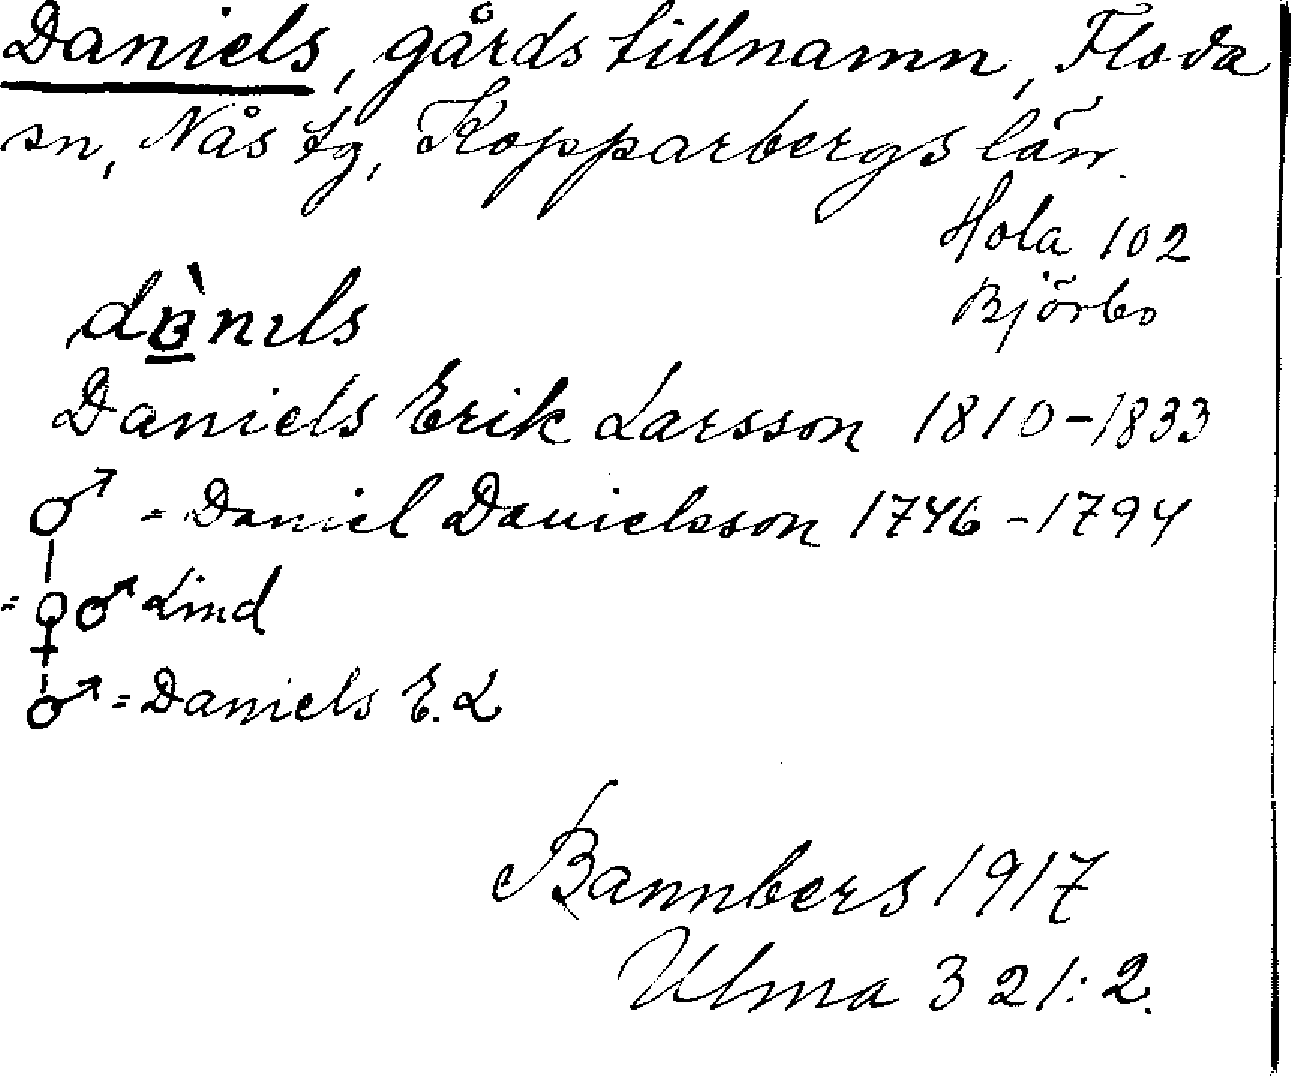 Daniels, gårdstillnamn, Floda
sn, Nås tg, Kopparbergs län.
Hola 102
Björbo
Daniels Erik Larsson 1810-1833
♂ = Daniel Danielsson 1746-1794
= ♀ ♂ Lind
♂ = Daniels E. L
Bannbers 1917
Ulma 321:2.